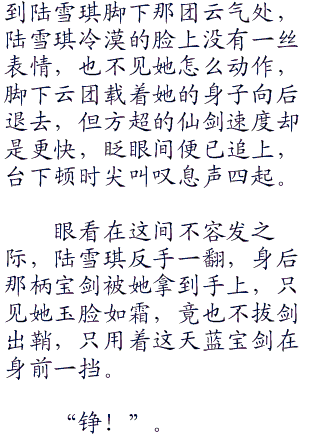 到陆雪琪脚下那团云气处，
陆雪琪冷漠的脸上没有一丝
表情，也不见她怎么动作，
脚下云团载着她的身子向后
退去，但方超的仙剑速度却
是更快，眨眼间便已追上，
台下顿时尖叫叹息声四起。
眼看在这间不容发之
际，陆雪琪反手一翻，身后
那柄宝剑被她拿到手上，只
见她玉脸如霜，竟也不拔剑
出鞘，只用着这天蓝宝剑在
身前一挡。
“铮！”。